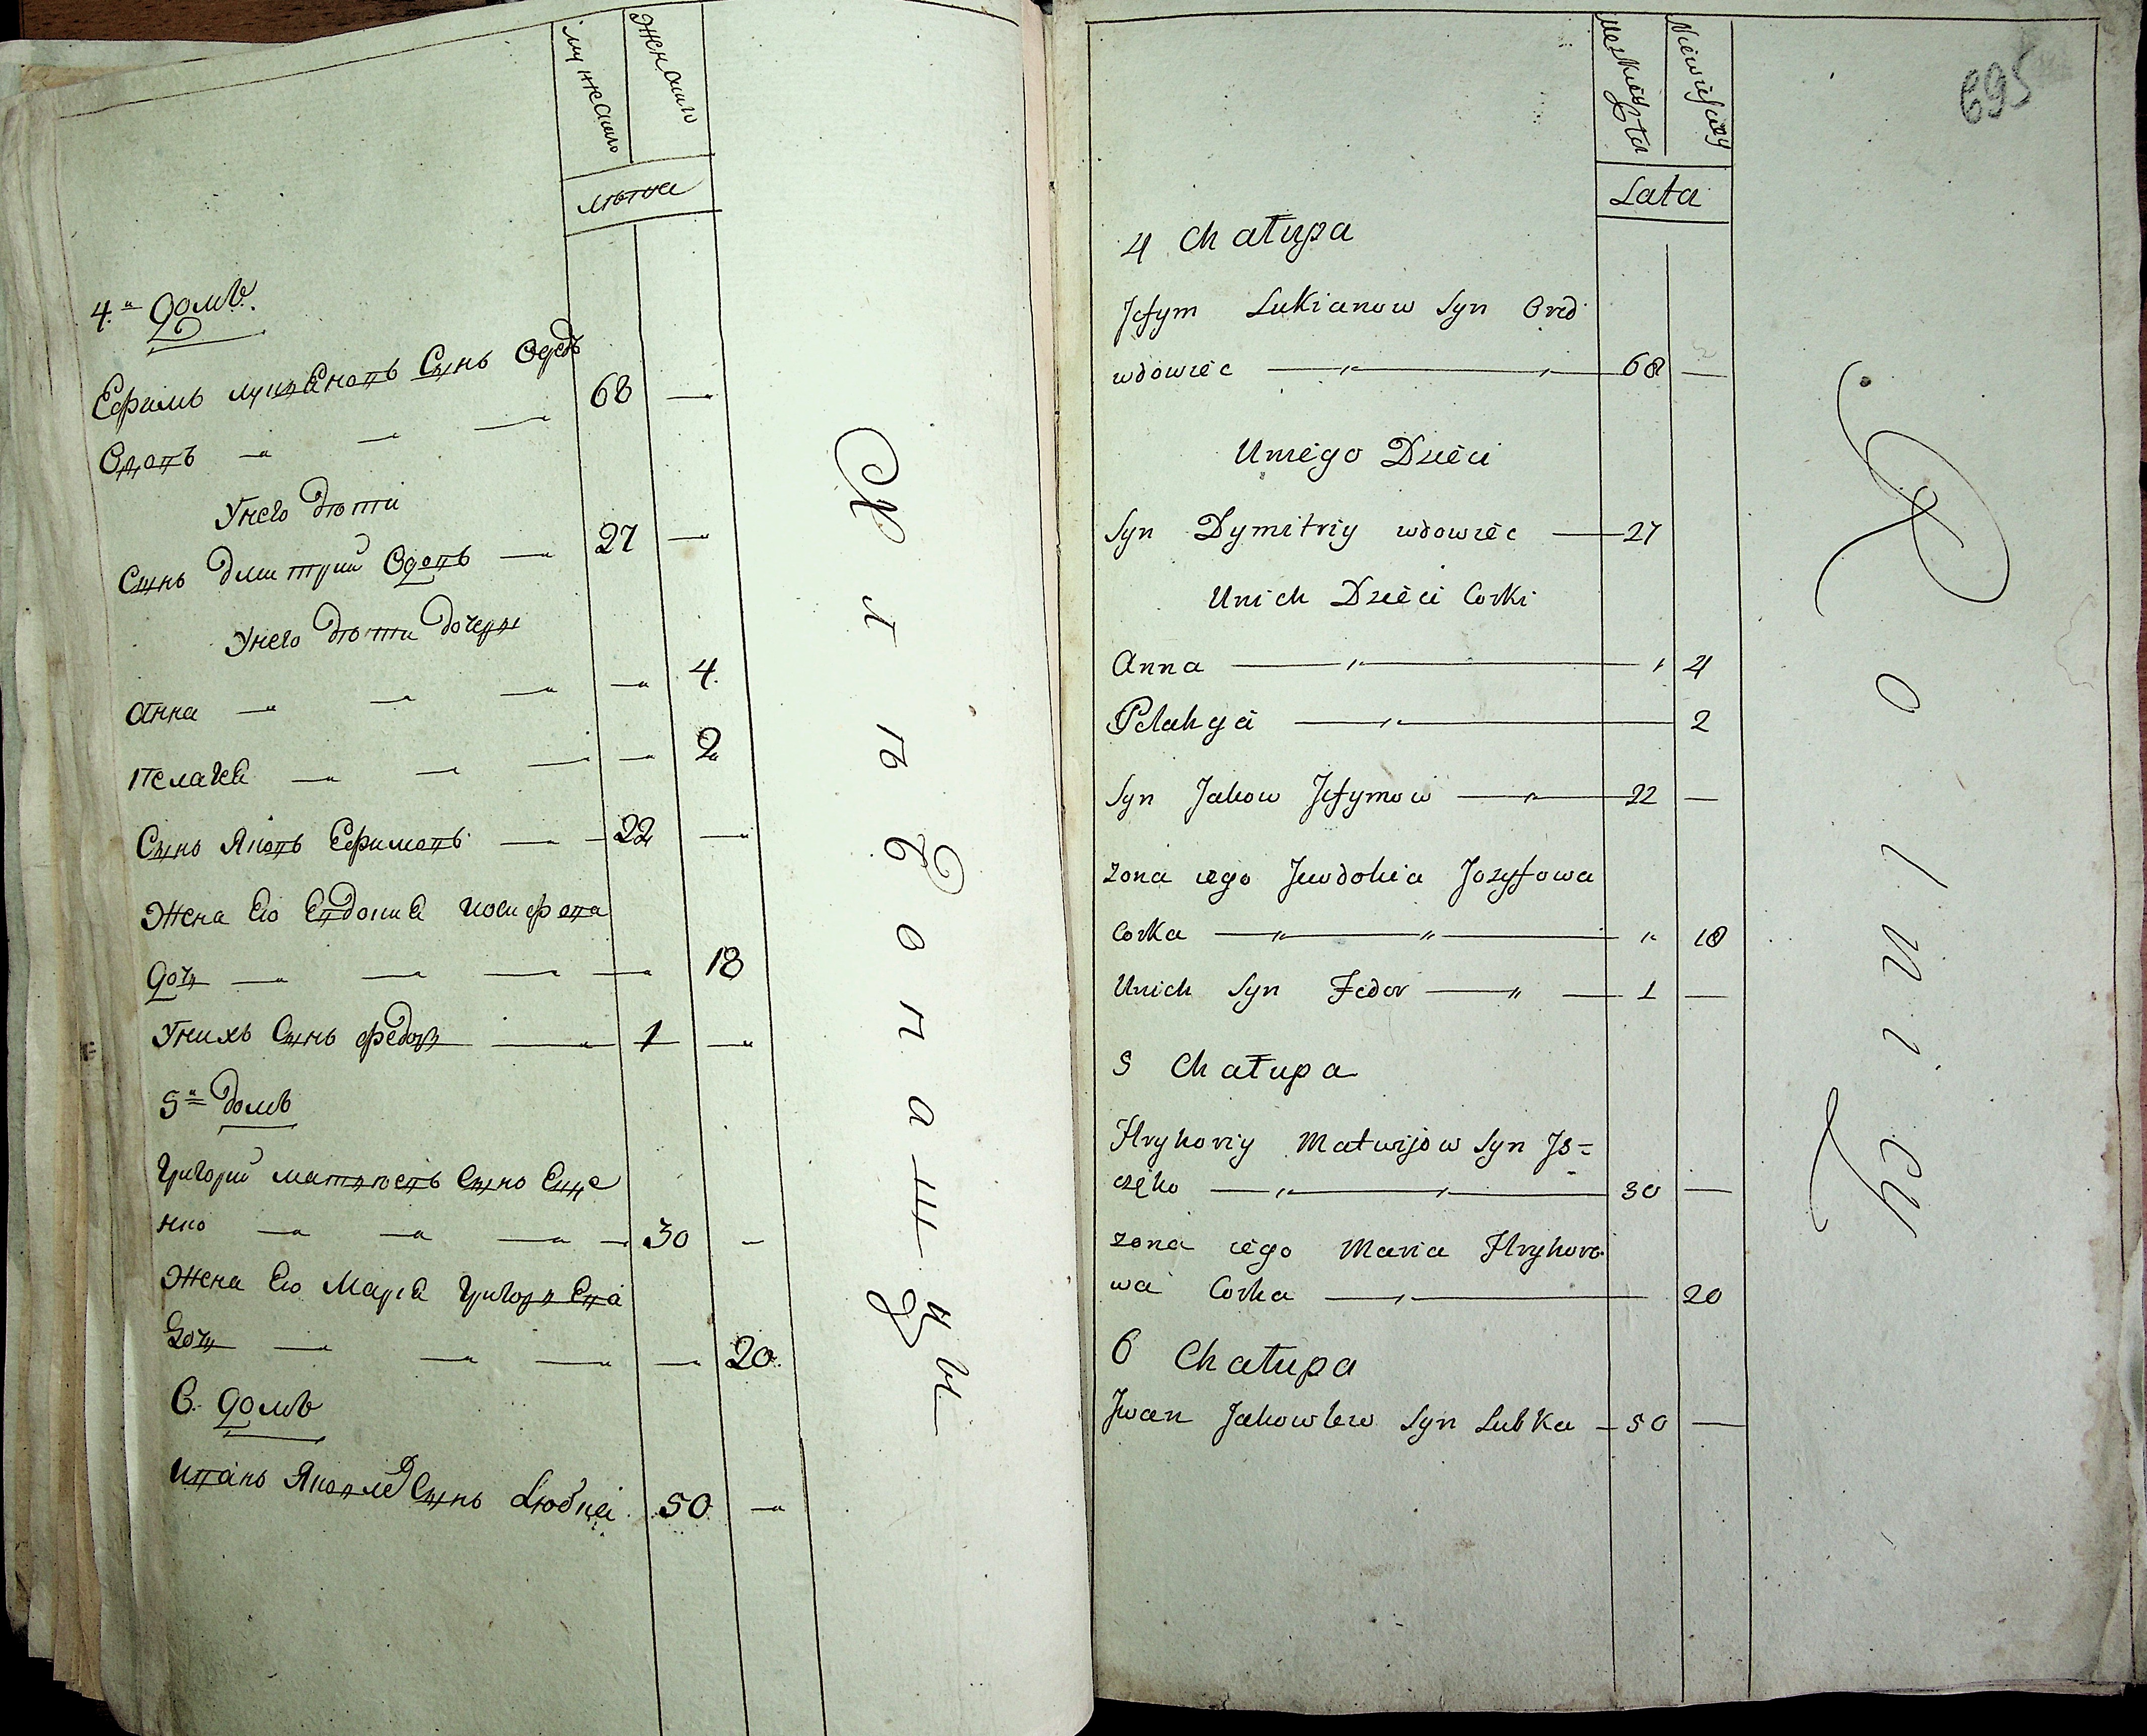 мужеска
женска
лѣта
4.й домъ.
Ефимъ лукяновъ Сынъ Орд
вдовъ
Унего дѣти
68 —
Сынъ Дмитрий вдовъ — 27 —
Унего дѣти дочери
Анна — 4.
Пелагея — 2
Сынъ Яковъ Ефимовъ — 22 —
Жена Его Евдокия иосифова
дочь — 18
Унихъ Сынъ федоръ — 1 —
5й домъ
Григорий матвѣевъ Сынъ
— 30 —
Жена Его Мария Григориева
дочь — 20.
6. домъ
иванъ Яковлевъ Сынъ Любка 50 —
695
Męskiey
Niewieściey
Lata
4 Chałupa
Jefym Lukianow Syn Ord
wdowiec — 68 —
Uniego Dzieci
Syn Dymitriy wdowiec — 27
Unich Dzieci Corki
Anna — 4
Pelahya — 2
Syn Jakow Jefymow — 22 —
zona iego Jewdokia Jozyfowa
Corka — 18
Unich Syn Fedor — 1 —
5 Chałupa
Hryhoriy Matwijow Syn Js=
— 30 —
zona iego Maria Hryhoro
wa Corka — 20
6 Chałupa
Jwan Jakowlew Syn Lubka — 50 —
Rolnicy